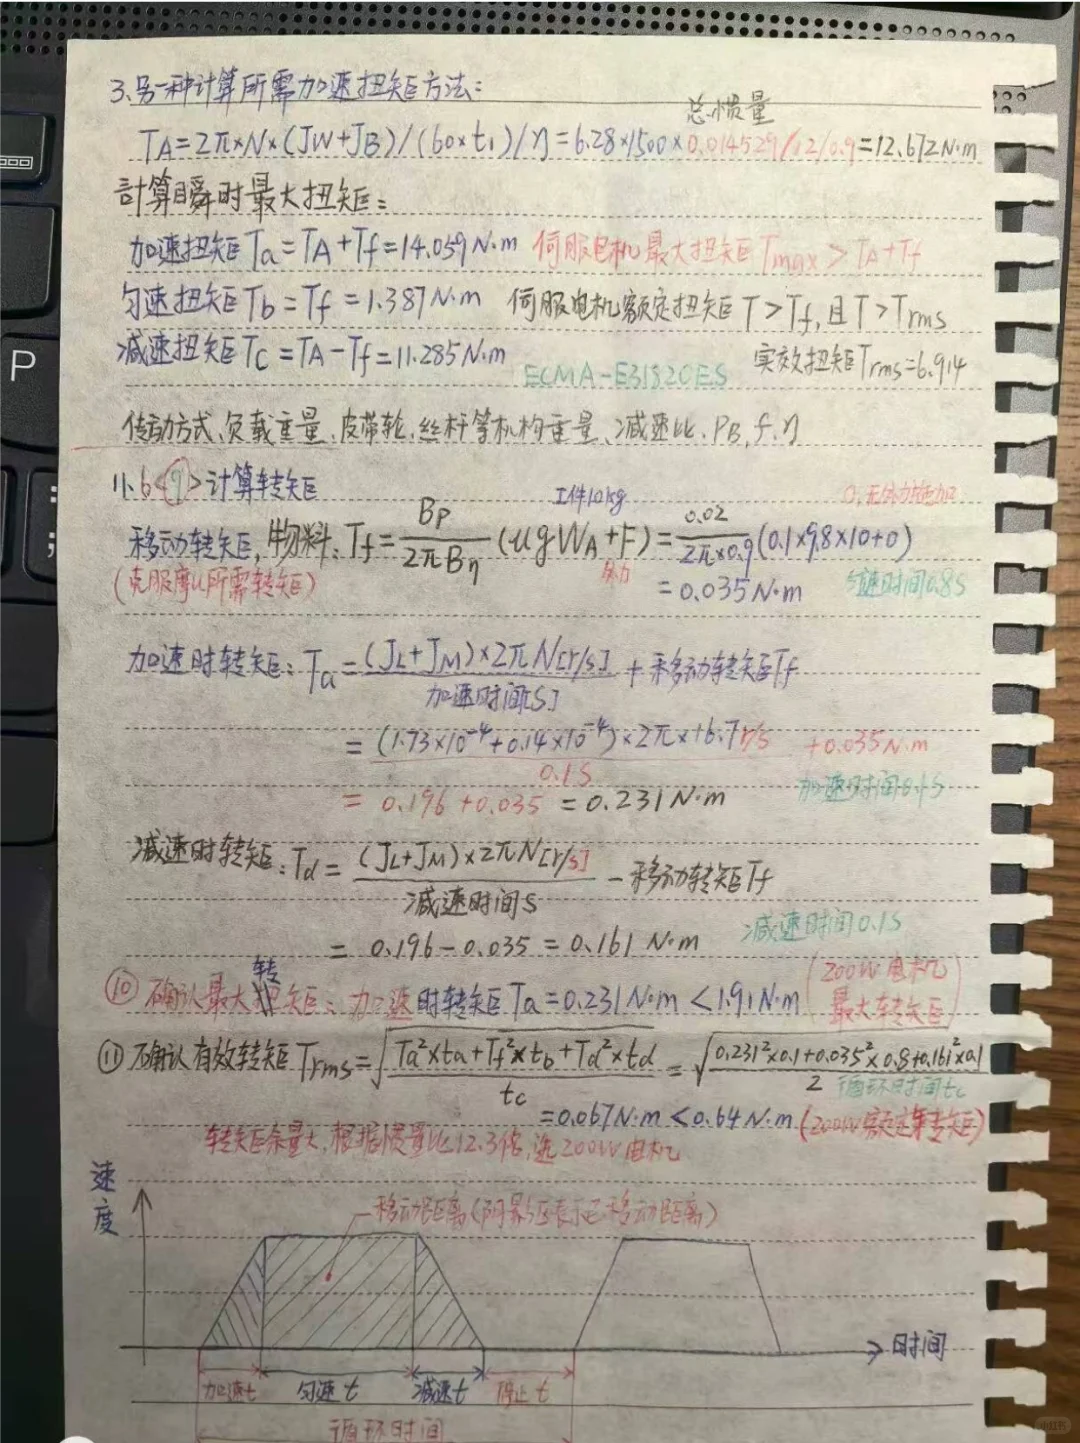 3、另一种计算所需加速扭矩方法:
总惯量
TA=2π×N×(JW+JB)/(60×t1)/η=6.28×1500×0.014529/12/0.9=12.672N·m
計算瞬时最大扭矩:
加速扭矩Ta=TA+Tf=14.059N·m 伺服电机最大扭矩Tmax>TA+Tf
匀速扭矩Tb=Tf=1.387N·m 伺服电机额定扭矩T>Tf,且T>Trms
减速扭矩Tc=TA-Tf=11.285N·m ECMA-E31820ES 实效扭矩Trms=6.914
传动方式、负载重量、皮带轮、丝杆等机构重量、减速比、PB,f,η
小6<9>计算转矩 工件10kg 0,无外力施加
移动转矩,物料:Tf=BP/2πBη(ugWA+F)=0.02/2π×0.9(0.1×9.8×10+0)
(克服摩U所需转矩) 外力 =0.035N·m 匀速时间0.8S
加速时转矩:Ta=(JL+JM)×2πN[r/s]/加速时间[S]+移动转矩Tf
=(1.73×10⁻⁴+0.14×10⁻⁴)×2π×16.7r/s/0.1S+0.035N·m
=0.196+0.035=0.231N·m 加速时间0.1S
减速时转矩:Td=(JL+JM)×2πN[r/s]/减速时间S-移动转矩Tf
=0.196-0.035=0.161N·m 减速时间0.1S
⑩确认最大转矩:加速时转矩Ta=0.231N·m<1.91N·m(200W电机最大转矩)
⑪确认有效转矩Trms=√Ta²×ta+Tf²×tb+Td²×td/tc=√0.231²×0.1+0.035²×0.8+0.161²×0.1/2 循环时间tc
=0.067N·m<0.64N·m(200W额定转矩)
转矩余量大,根据惯量比12.3倍,选200W电机
速度
移动距离(阴影区表示已移动距离)
时间
加速t 匀速t 减速t 停止t
循环时间
小红书